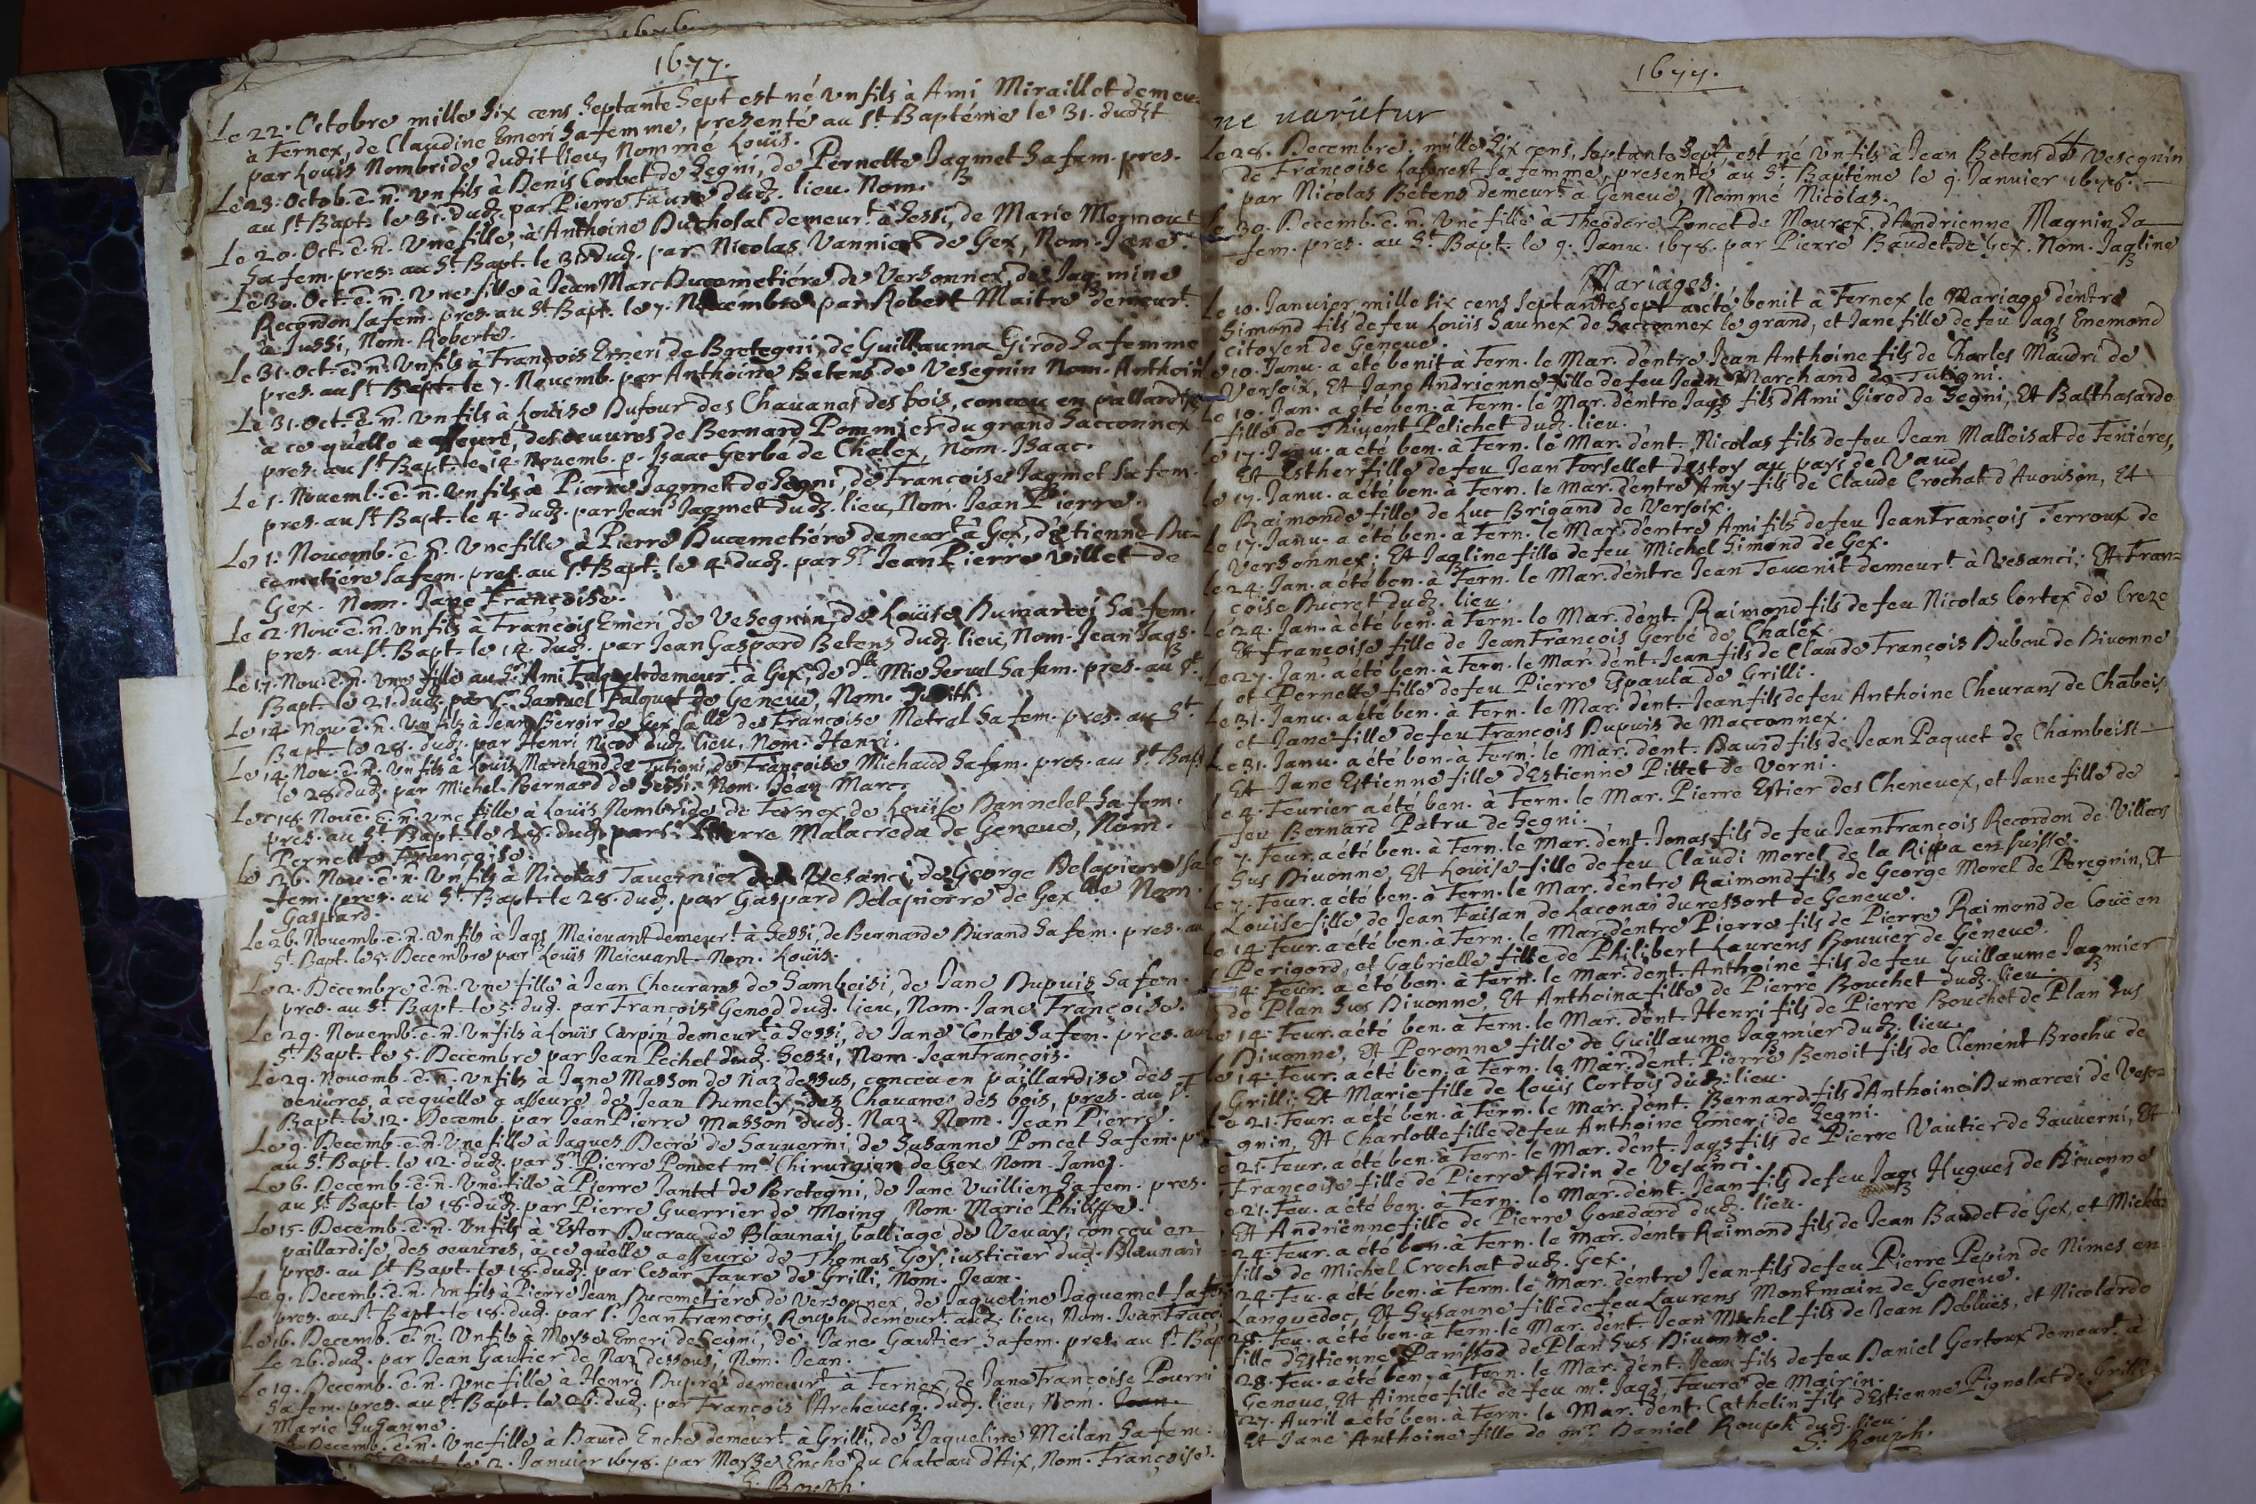 1676
1677.
Le 22. Octobre mille Six cens Septante Sept est né vn fils à Ami Miraillet demeu.
à Fernex, de Claudine Emeri Sa femme, presenté au St Baptéme le 31. dudit
par Louïs Nombride dudit lieu, Nommé Louïs.
Le 23. Octob. ē. n̄. vn fils à Denis Corbet de Segni, de Pernette Iaqmet Sa fem. pres.
au St Bapt. le 31. dud. par Pierre Faure dud. lieu. Nom.
Le 20. Oct. ē. n̄. vne fille, à Anthoine Duchosal demeur.t à Sessi, de Marie Mermout
Sa fem. pres. au St Bapt. le 31. dud. par Nicolas Vannier de Gex, Nom. Iane.
Le 30. Oct. ē. n̄. vne fille à Iean Marc Ducemetiére de Versonnex, de Iaq. mine
Recordon Sa fem. pres. au St Bapt. le 7. Nouembre par Robert Maitre demeur.t
à Iussi, Nom. Roberte.
Le 31. Oct. ē. n̄. vn fils à François Emeri de Bretegni, de Guillauma Girod Sa femme
pres. au St Bapt. le 7. Nouemb. par Anthoine Betens de Vesegnin Nom. Anthoin
Le 31. Oct. ē. n̄. vn fils à Louïse Dufour des Chauanes des bois, conceu en paillardise
à ce qu'elle a asseuré, des oeuures de Bernard Pommier du grand Sacconnex
pres. au St Bapt. le 14. Nouemb. p. Isaac Gerbe de Chalex, Nom. Isaac.
Le 1. Nouemb. ē. n̄. vn fils à Pierre Iaqmet de Segni, de Françoise Iaqmet Sa fem.
pres. au St Bapt. le 4. dud. par Iean Iaqmet dud. lieu, Nom. Iean Pierre.
Le 1. Nouemb. ē. n̄. vne fille à Pierre Ducemetiére demeur.t à Gex, d'Etienne Du-
cemetiere Sa fem. pres. au St Bapt. le 4. dud. par Sr Iean Pierre Villet de
Gex. Nom. Iane Françoise.
Le 2. Nou. ē. n̄. vn fils à François Emeri de Vesegnin, de Louïse Dumarcei Sa fem.
pres. au St Bapt. le 14. dud. par Iean Gaspard Betens dud. lieu, Nom. Iean Iaqs.
Le 17. Nou. ē. n̄. vne fille au Sr Ami Falquet demeur.t à Gex, de dlle Mie Serval Sa fem. pres. au St
Bapt. le 21. dud. par Sr Samuel Falquet de Geneue, Nom. Iudith.
Le 14. Nou. ē. n̄. vn fils à Iean Beroir de Gex la Ville de Françoise Metral Sa fem. pres. au St
Bapt. le 28. dud. par Henri Nicod dud. lieu, Nom. Henri.
Le 14. Nou. ē. n̄. vn fils à Louïs Marchand de Tutigni, de Françoise Michaud Sa fem. pres. au St Bapt
le 28. dud. par Michel Bernard de Sessi. Nom. Iean Marc.
Le 18. Noue. ē. n̄. vne fille à Louïs Nombride de Fernex de Louïse Dannelet Sa fem.
pres. au St Bapt. le 28. dud. par Sr Pierre Malacreda de Geneue, Nom.
Pernette Françoise.
Le 26. Nou. ē. n̄. vn fils à Nicolas Tauernier de Vesanci, de George Delapierre Sa
fem. pres. au St Bapt. le 28. dud. par Gaspard Delapierre de Gex Nom.
Gaspard.
Le 26. Nouemb. ē. n̄. vn fils à Iaqs Meieuant demeur.t à Sessi, de Bernarde Durand Sa fem. pres. au
St Bapt. le 5. Decembre par Louïs Meieuant. Nom. Louïs.
Le 2. Décembre ē. n̄. vne fille à Iean Cheurans de Sambeisi, de Iane Dupuis Sa fem.
pres. au St Bapt. le 5. dud. par François Genod dud. lieu, Nom. Iane Françoise.
Le 29. Nouemb. ē. n̄. vn fils à Louïs Carpin demeur.t à Sessi, de Iane Conte Sa fem. pres. au
St Bapt. le 5. Decembre par Iean Pechet dud. Sessi, Nom. Ieanfrancois.
Le 29. Nouemb. ē. n̄. vn fils à Iane Masson de Naz dessus, conceu en paillardise des
oeuures, à ce quelle a asseuré de Iean Dumely des Chauanes des bois, pres. au St
Bapt. le 12. Decemb. par Iean Pierre Masson dud. Naz. Nom. Iean Pierre.
Le 9. Decemb. ē. n̄. vne fille à Iaques Decré de Sauuerni, de Susanne Poncet Sa fem. p
au St Bapt. le 12. dud. par Sr Pierre Poncet m.e Chirurgien de Gex Nom. Iane.
Le 6. Decemb. ē. n̄. vne fille à Pierre Iantet de Bretegni, de Iane Vuillien Sa fem. pres.
au St Bapt. le 18. dud. par Pierre Guerrier de Moing Nom. Marie Philippe.
Le 15. Decemb. ē. n̄. vn fils à Estor Ducrau de Blaunais, balliage de Veuay, conceu en
paillardise, des oeuures, à ce qu'elle a asseuré de Thomas Goy, iusticier dud. Blaunais
pres. au St Bapt. le 18. dud. par Cesar Faure de Grilli, Nom. Iean.
Le 9. Decemb. ē. n̄. vn fils à Pierre Iean Ducemetiére de Versonnex, de Iaqueline Iaquemet Sa fe
pres. au St Bapt. le 18. dud. par Sr Ieanfrancois Rouph demeur.t aud. lieu, Nom. Iean Franco
Le 16. Decemb. ē. n̄. vn fils à Moyse Emeri de Segni, de Iane Gautier Sa fem. pres. au St Bap
le 26. dud. par Iean Gautier de Naz dessous, Nom. Iean.
Le 19. Decemb. ē. n̄. vne fille à Henri Dupré demeur.t à Fernex, de Iane Françoise Pourri
Sa fem. pres. au St Bapt. le 26. dud. par François l'Archeuesq. dud. lieu, Nom. Iean
Marie Susanne.
Decemb. ē. n̄. vne fille à Dauid Enche demeur.t à Grilli, de Iaqueline Meilan Sa fem.
St Bapt. le 2. Ianuier 1678. par Moyse Enche du Chateau d'Aix, Nom. Françoise.
S. Rouph.
1677.
ne varietur
Le 28. Decembre mille Six cens, Septante Sept est né vn fils à Iean Betens de Vesegnin
de Françoise Laforest Sa femme, presenté au St Baptéme le 9. Ianuier 1678.
par Nicolas Betens demeur.t à Geneue, Nommé Nicolas.
Le 30. Decemb. ē. n̄. vne fille à Theodore Poncet de Mourex, d'Andrienne Magnin Sa
fem. pres. au St Bapt. le 9. Ianu. 1678. par Pierre Baudet de Gex. Nom. Iaqline
Mariages.
Le 10. Ianuier, mille Six cens Septantesept a eté benit à Fernex le Mariage d'entre
Simond fils de feu Louïs Saunex de Sacconnex le grand, et Iane fille de feu Iaqs Enemond
citoyen de Geneue.
Le 10. Ianu. a été benit à Fern. le Mar. d'entre Iean Anthoine fils de Charles Maudri de
Versoix, Et Iane Andrienne fille de feu Iean Marchand de Tutigni.
Le 10. Ian. a été ben. à Fern. le Mar. d'entre Iaqs fils d'Ami Girod de Segni, Et Balthasarde
fille de Thiuent Pelichet dud. lieu.
Le 17. Ianu. a été ben. à Fern. le Mar. d'ent. Nicolas fils de feu Iean Malleisat de Feniéres,
Et Esther fille de feu Iean Forsellet d'Estoy au pays de Vaud.
Le 17. Ianu. a été ben. à Fern. le Mar. d'entre Amy fils de Claude Crochat d'Auouson, Et
Raimonde fille de Luc Brigand de Versoix.
Le 17. Ianu. a été ben. à Fern. le Mar. d'entre Ami fils de feu Ieanfrançois Terroux de
Versonnex, Et Iaqline fille de feu Michel Simond de Gex.
Le 24. Ian. a été ben. à Fern. le Mar. d'entre Iean Teuenit demeur.t à Vesanci, Et Fran-
çoise Ducret dud. lieu.
Le 24. Ian. à été ben. à Fern. le Mar. d'ent. Raimond fils de feu Nicolas Cortex de Creze
Et Françoise fille de Ieanfrançois Gerbé de Chalex.
Le 27. Ian. a été ben. à Fern. le Mar. d'ent. Iean fils de Claude François Dubou de Diuonne
et Pernette fille de feu Pierre Espaula de Grilli.
Le 31. Ianu. a été ben. à Fern. le Mar. d'ent. Iean fils de feu Anthoine Cheurans de Chabeis
et Iane fille de feu François Dupuis de Macconnex.
Le 31. Ianu. a été ben. à Fern. le Mar. d'ent. Dauid fils de Iean Paquet de Chambeisi
Et Iane Estienne fille d'Estienne Pittet de Verni.
Le 4. Feurier a été ben. à Fern. le Mar. Pierre Estier des Cheneuex, et Iane fille de
feu Bernard Patru de Segni.
Le 7. Feur. a été ben. à Fern. le Mar. d'ent. Ionas fils de feu Ieanfrançois Recordon de Villars
Sus Diuonne, Et Louïse fille de feu Claudi Morel de la Rippa en suisse.
Le 7. Feur. a été ben. à Fern. le Mar. d'entre Raimond fils de George Morel de Peregnin, Et
Louïse fille de Iean Faisan de Laconai du ressort de Geneue.
Le 14. Feur. a été ben. à Fern. le Mar. d'entre Pierre fils de Pierre Raimond de Couë en
Perigord, et Gabrielle fille de Philibert Laurens Bouuier de Geneue.
14. Feur. a été ben. à Fern. le Mar. d'ent. Anthoine fils de feu Guillaume Iaqmier
de Plan Sus Diuonne, Et Anthoina fille de Pierre Bouchet dud. lieu.
Le 14. Feur. a été ben. à Fern. le Mar. d'ent. Henri fils de Pierre Bouchet de Plan Sus
Diuonne, Et Peronne fille de Guillaume Iaqmier dud. lieu.
Le 14. Feur. a été ben. à Fern. le Mar. d'ent. Pierre Benoit fils de Clement Brochu de
Grilli. Et Marie fille de Louïs Cortois dud. lieu.
Le 21. Feur. a été ben. à Fern. le Mar. d'ent. Bernard fils d'Anthoine Dumarcei de Vese-
gnin, Et Charlotte fille de feu Anthoine Emeri de Segni.
21. Feur. a été ben. à Fern. le Mar. d'ent. Iaqs fils de Pierre Vautier de Sauuerni, Et
Françoise fille de Pierre Ardin de Vesanci.
21. Feu. a été ben. à Fern. le Mar. d'ent. Iean fils de feu Iaqs Hugues de Diuonne
Et Andriënne fille de Pierre Goudard dud. lieu.
24. Feur. a été ben. à Fern. le Mar. d'ent. Raimond fils de Iean Baudet de Gex, et Michée
fille de Michel Crochat dud. Gex.
24. Feu. a été ben. à Fern. le Mar. d'entre Iean fils de feu Pierre Pepin de Nimes en
Languedoc, Et Susanne fille de feu Laurens Montmain de Geneue.
28. Feu. a été ben. à Fern. le Mar. d'ent. Iean Michel fils de Iean Deblües, et Nicolarde
fille d'Estienne Panissod de Plan Sus Diuonne.
28. Feu. a été ben. à Fern. le Mar. d'ent. Iean fils de feu Daniel Gertoux demeur.t à
Geneue, Et Aimée fille de feu m.e Iaqs Faure de Mairin.
27. Auril a été ben. à Fern. le Mar. d'ent. Cathelin fils d'Estienne Pignolat de Grilli
Et Iane Anthoine fille de m.re Daniel Rouph dud. lieu.
S. Rouph.